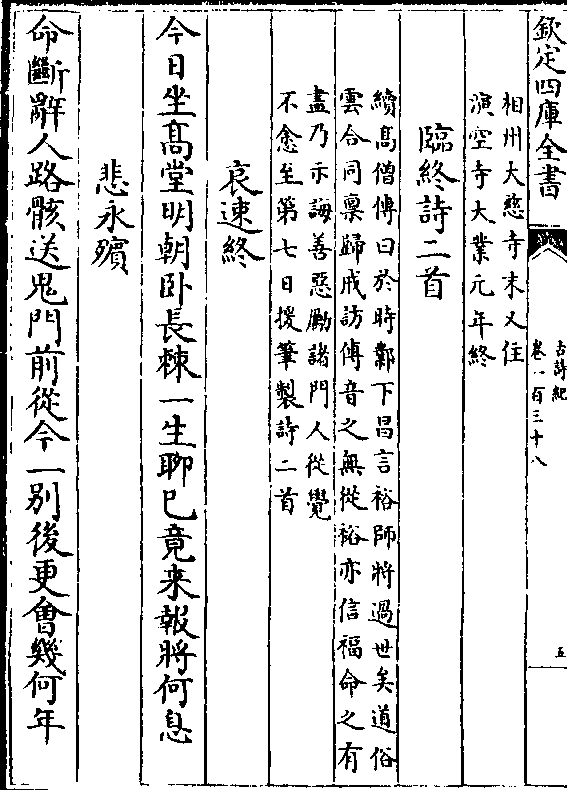 欽定四庫全書
古詩紀
卷一百三十八
五
相州大慈寺末又住
演空寺大業元年終
臨終詩二首
續髙僧傳曰於時鄴下昌言裕師將過世矣道俗
雲合同稟歸戒訪傳音之無從裕亦信福命之有
盡乃示誨善惡勵諸門人從覺
不悆至第七日援筆製詩二首
哀速終
今日坐髙堂明朝卧長棘一生聊已竟来報將何息
悲永殯
命斷辭人路骸送鬼門前從今一别後更㑹幾何年